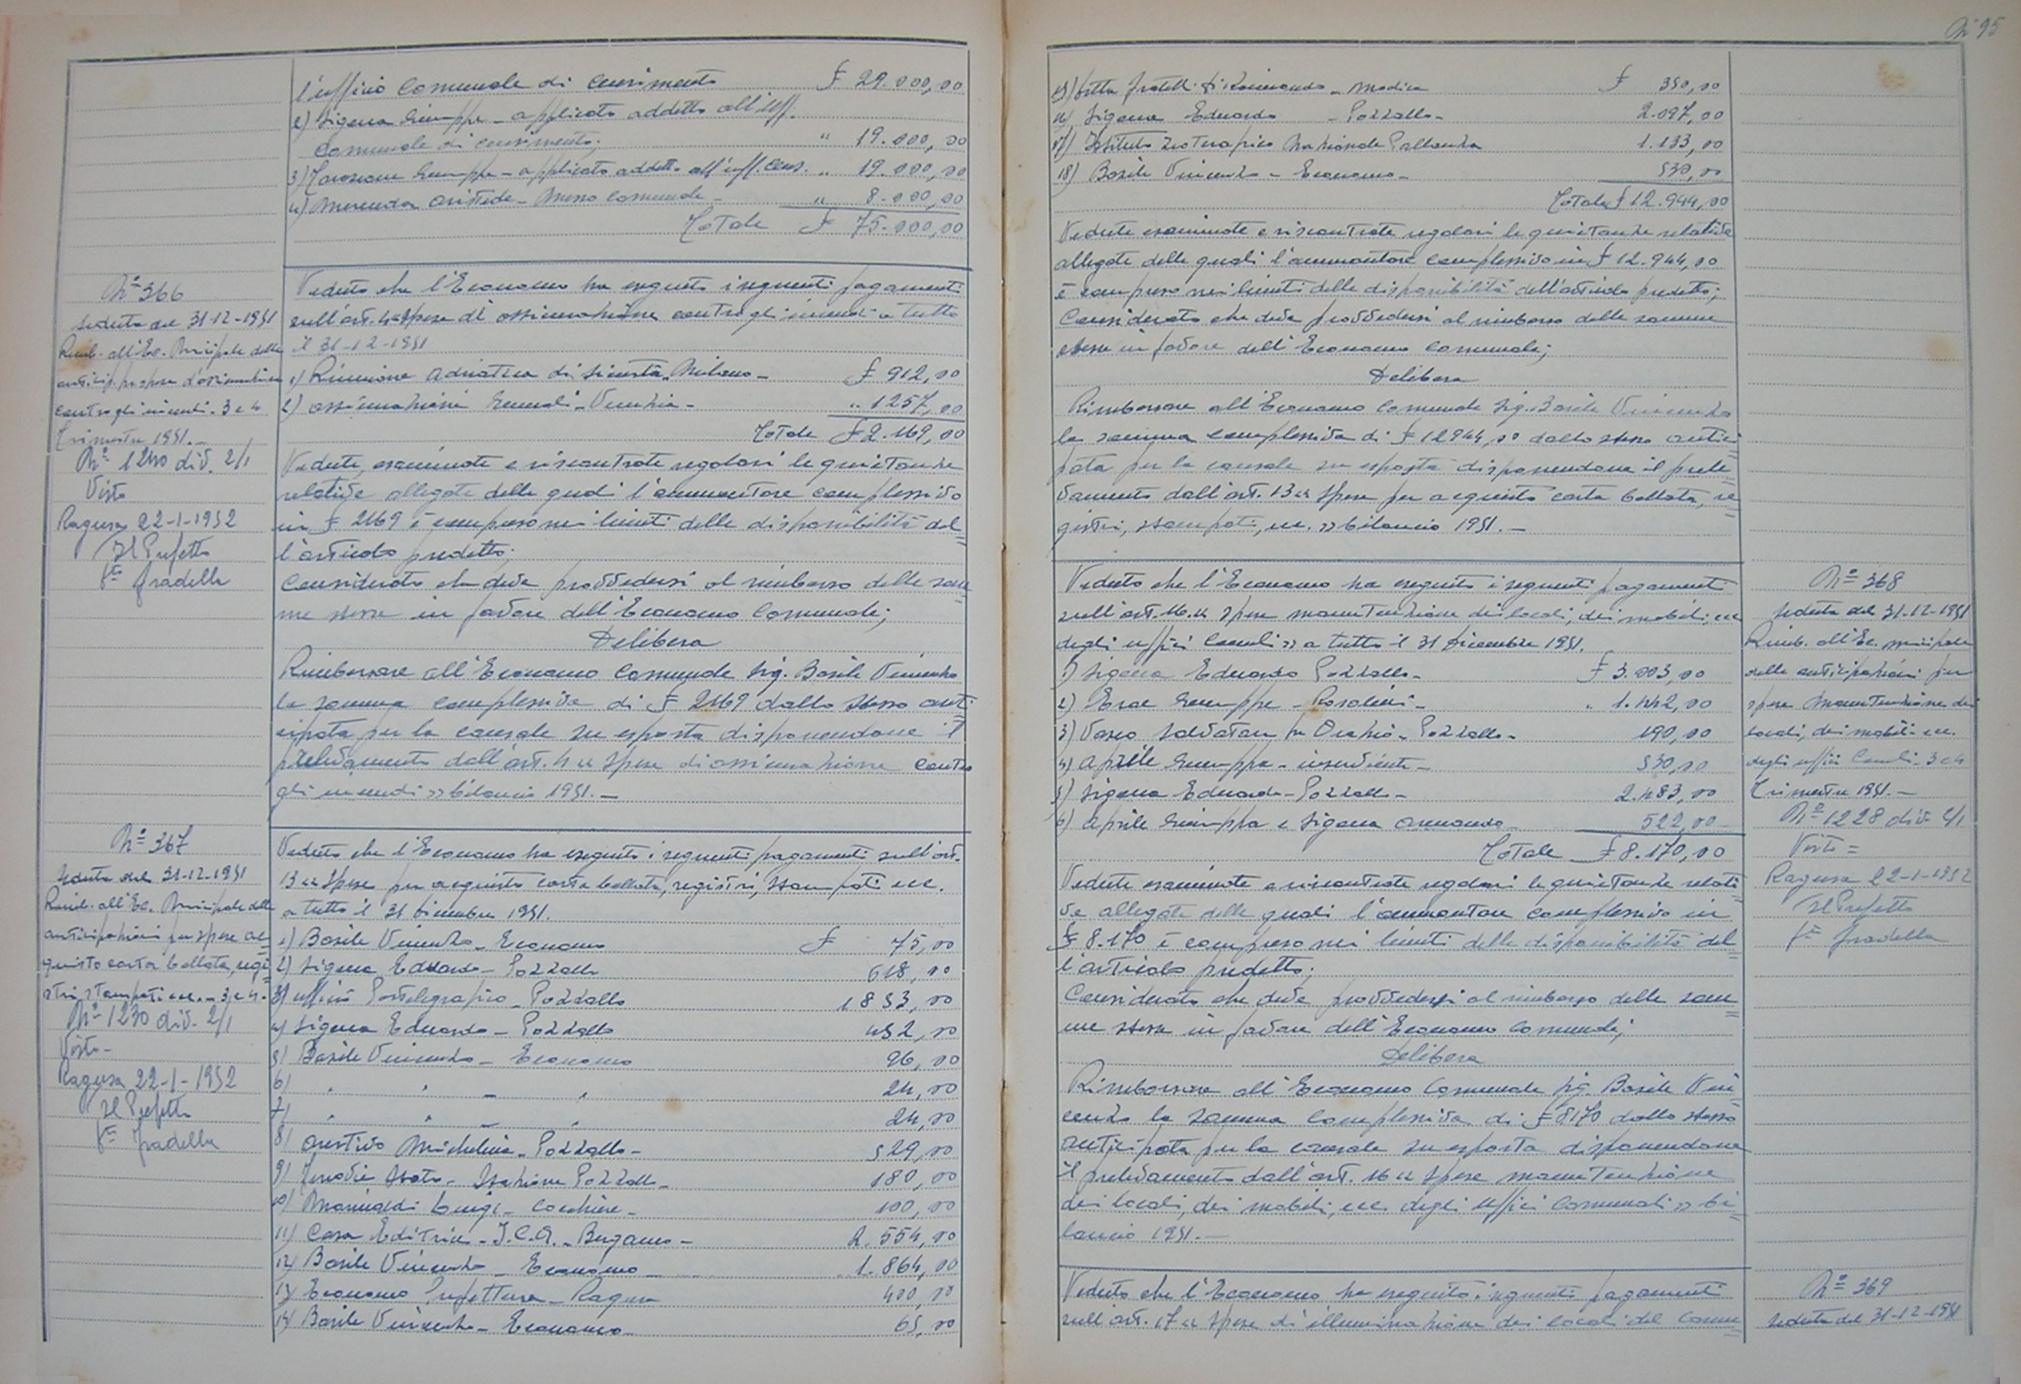 l'ufficio Comunale di censimento £ 29.000,00
2) Sigona Giuseppe - applicato addetto all'uff.
Comunale di censimento. " 19.000,00
3) Giuseppe - applicato addetto all'uff. cens. " 19.000,00
4) Merenda Aristide - Messo Comunale - " 8.000,00
Totale £ 75.000,00
N° 366
Seduta del 31-12-1951
Rimb. all'Ec. Municipale delle
anticip. per spese d'assicurazione
contro gli incendi - 3 e 4
Trimestre 1951. -
N° 1240 div. 2/1
Visto
Ragusa 22-1-1952
Il Prefetto
f.to Gradella
Veduto che l'Economo ha eseguito i seguenti pagamenti
sull'art. 4 "Spese di assicurazione contro gli incendi" a tutto
il 31-12-1951
1) Riunione Adriatica di Sicurtà - Milano - £ 912,00
2) Assicurazioni Generali - Venezia - " 1257,00
Totale £ 2.169,00
Vedute, esaminate e riscontrate regolari le quietanze
relative allegate delle quali l'ammontare complessivo
in £ 2169 è compreso nei limiti delle disponibilità del=
l'articolo predetto;
Considerato che deve provvedersi al rimborso delle som=
me stesse in favore dell'Economo Comunale;
Delibera
Rimborsare all'Economo Comunale Sig. Basile Vincenzo
la somma complessiva di £ 2169 dallo stesso anti=
cipata per la causale su esposta disponendone il
prelevamento dall'art. 4 "Spese di assicurazione contro
gli incendi" bilancio 1951. -
N° 367
Seduta del 31-12-1951
Rimb. all'Ec. Municipale delle
anticipazioni per spese ac=
quisto carta bollata, regi=
stri, stampati ecc. - 3 e 4 -
N° 1230 div. 2/1
Visto -
Ragusa 22-1-1952
Il Prefetto
f.to Gradella
Veduto che l'Economo ha eseguito i seguenti pagamenti sull'art.
13 "Spese per acquisto carta bollata, registri, stampati ecc.
a tutto il 31 dicembre 1951.
1) Basile Vincenzo - Economo £ 75,00
2) Sigona Edoardo - Pozzallo 618,00
3) Ufficio Postelegrafico - Pozzallo 1.853,00
4) Sigona Eduardo - Pozzallo 452,00
5) Basile Vincenzo - Economo 96,00
6) " " - " 24,00
7) " " - " 24,00
8) Michelina - Pozzallo - 529,00
9) Stato - Stazione Pozzallo - 180,00
10) Luigi - Cocchiere - 100,00
11) Casa Editrice - I.C.A. - Bergamo - 2.554,00
12) Basile Vincenzo - Economo - 1.864,00
13) Economo Prefettura - Ragusa 400,00
14) Basile Vincenzo - Economo - 65,00
N° 95
15) Ditta Fratelli Di Raimondo - Modica £ 350,00
16) Sigona Eduardo - Pozzallo - 2.097,00
17) Istituto Zooterapico Nazionale Pallanza 1.133,00
18) Basile Vincenzo - Economo - 530,00
Totale £ 12.944,00
Vedute esaminate e riscontrate regolari le quietanze relative
allegate delle quali l'ammontare complessivo in £ 12.944,00
è compreso nei limiti delle disponibilità dell'articolo predetto;
Considerato che deve provvedersi al rimborso delle somme
stesse in favore dell'Economo Comunale;
Delibera
Rimborsare all'Economo Comunale Sig. Basile Vincenzo
la somma complessiva di £ 12944,00 dallo stesso antici=
pata per la causale su esposta disponendone il prele=
vamento dall'art. 13 "Spese per acquisto carta bollata, re=
gistri, stampati, ecc." bilancio 1951. -
Veduto che l'Economo ha eseguito i seguenti pagamenti
sull'art. 16 "Spese manutenzione dei locali, dei mobili, ecc
degli uffici Com.li" a tutto il 31 Dicembre 1951.
1) Sigona Eduardo Pozzallo - £ 3.003,00
2) Giuseppe - Rosolini - " 1.442,00
3) Salvatore fu Orazio - Pozzallo - 190,00
4) Aprile Giuseppe - inserviente - 530,00
5) Sigona Eduardo - Pozzallo - 2.483,00
6) Aprile Giuseppe e Sigona Armando - 522,00
Totale £ 8.170,00
Vedute esaminate e riscontrate regolari le quietanze relati=
ve allegate delle quali l'ammontare complessivo in
£ 8.170 è compreso nei limiti delle disponibilità del=
l'articolo predetto;
Considerato che deve provvedersi al rimborso delle som=
me stesse in favore dell'Economo Comunale;
Delibera
Rimborsare all'Economo Comunale Sig. Basile Vin=
cenzo la somma complessiva di £ 8170 dallo stesso
anticipata per la causale su esposta disponendone
il prelevamento dall'art. 16 "Spese manutenzione
dei locali, dei mobili, ecc. degli Uffici Comunali" bi=
lancio 1951. -
N° 368
Seduta del 31-12-1951
Rimb. all'Ec. Municipale
delle anticipazioni per
spese manutenzione dei
locali, dei mobili ecc.
degli uffici Com.li - 3 e 4
Trimestre 1951. -
N° 1228 div. 2/1
Visto =
Ragusa 22-1-1952
Il Prefetto
f.to Gradella
Veduto che l'Economo ha eseguito i seguenti pagamenti
sull'art. 17 "Spese di illuminazione dei locali del Comu=
N° 369
Seduta del 31-12-1951